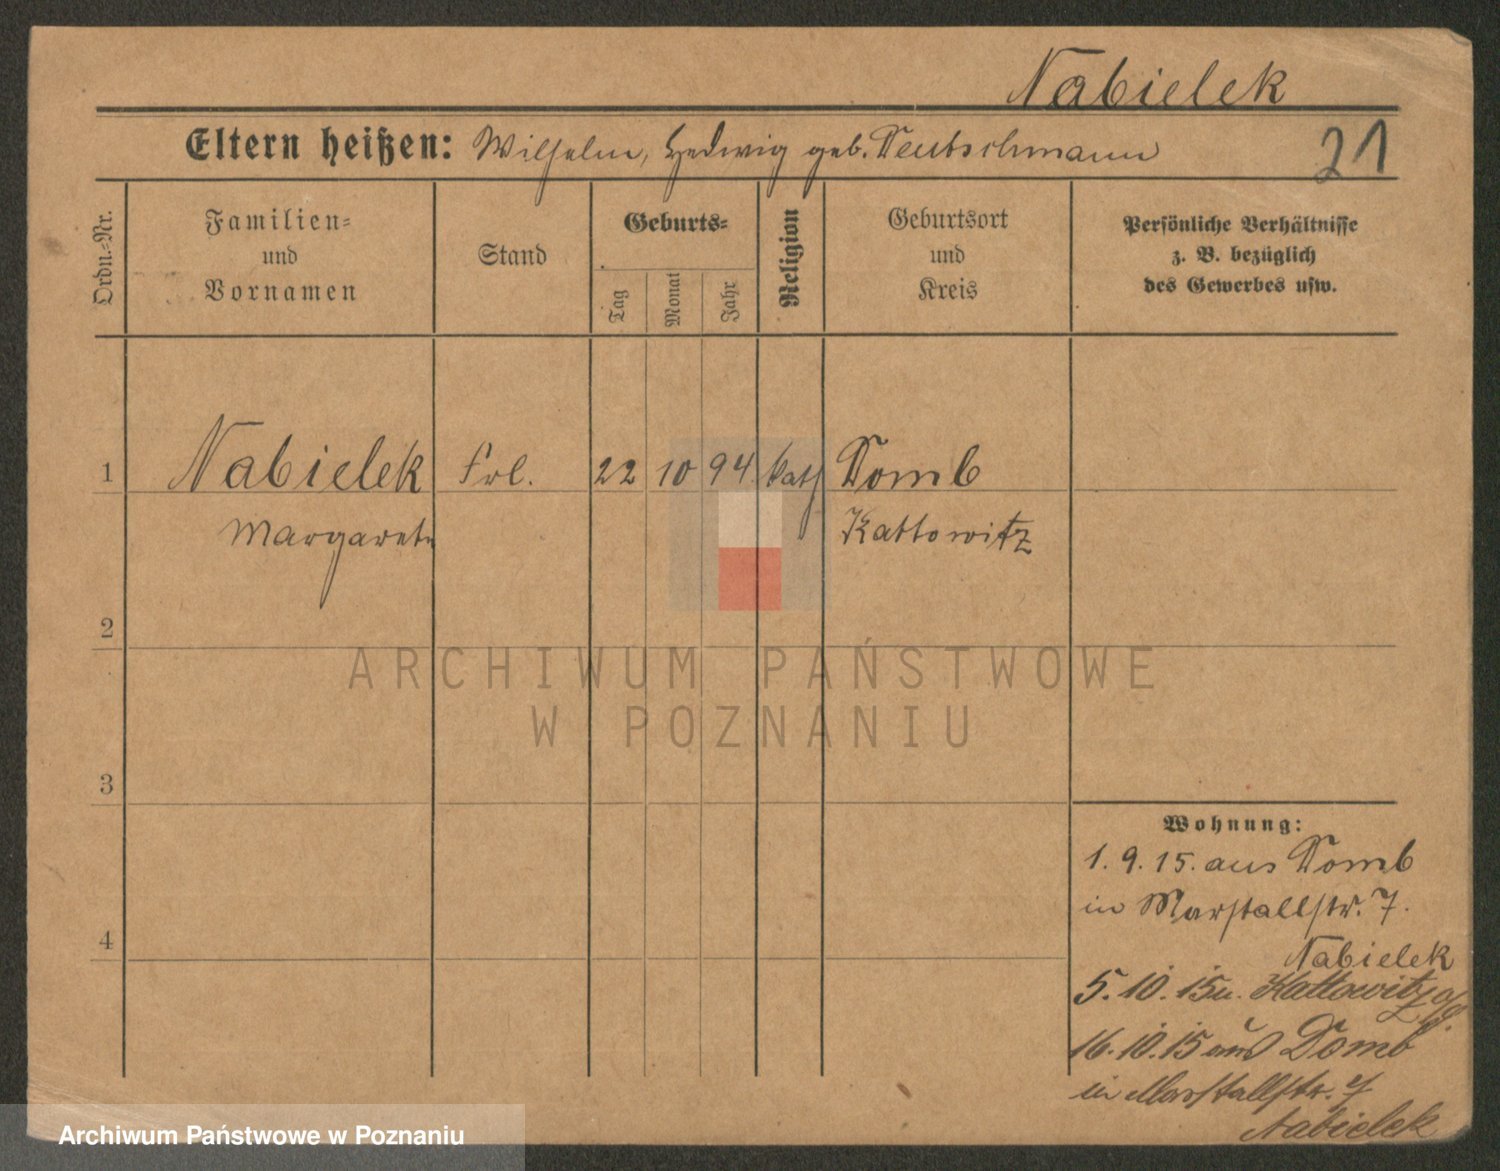 Nabielek
Eltern heißen: Wilhelm, Hedwig geb. Deutschmann
21
Ordn.-Nr.
Familien-
und
Vornamen
Stand
Geburts-
Tag
Monat
Jahr
Religion
Geburtsort
und
Kreis
Persönliche Verhältnisse
z. B. bezüglich
des Gewerbes usw.
1 Nabielek Frl. 22 10 94 kath Domb
Margarete Kattowitz
2
ARCHIWUM PAŃSTWOWE
W POZNANIU
3
Wohnung:
1. 9. 15. aus Domb
in Marstallstr. 7.
4
Nabielek
5. 10. 15 n. Kattowitz
16. 10. 15 aus Domb
in Marstallstr. 7
Nabielek
Archiwum Państwowe w Poznaniu